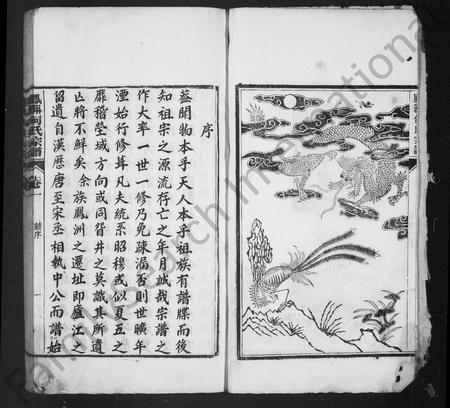 序
蓋聞物本乎天人本乎祖族有譜牒而後
知祖宗之源流存亡之年月誠哉宗譜之
作大率一世一修乃免疎漏否則世曠年
湮始行修葺凡夫統系昭穆或似夏五之
靡稽塋域方向或同眢井之莫識其所遺
亡將不鮮矣余族鳳洲之遷址即廬江之
留遺自漢歷唐至宋丞相執中公而譜始
氏宗譜
卷一
序
一